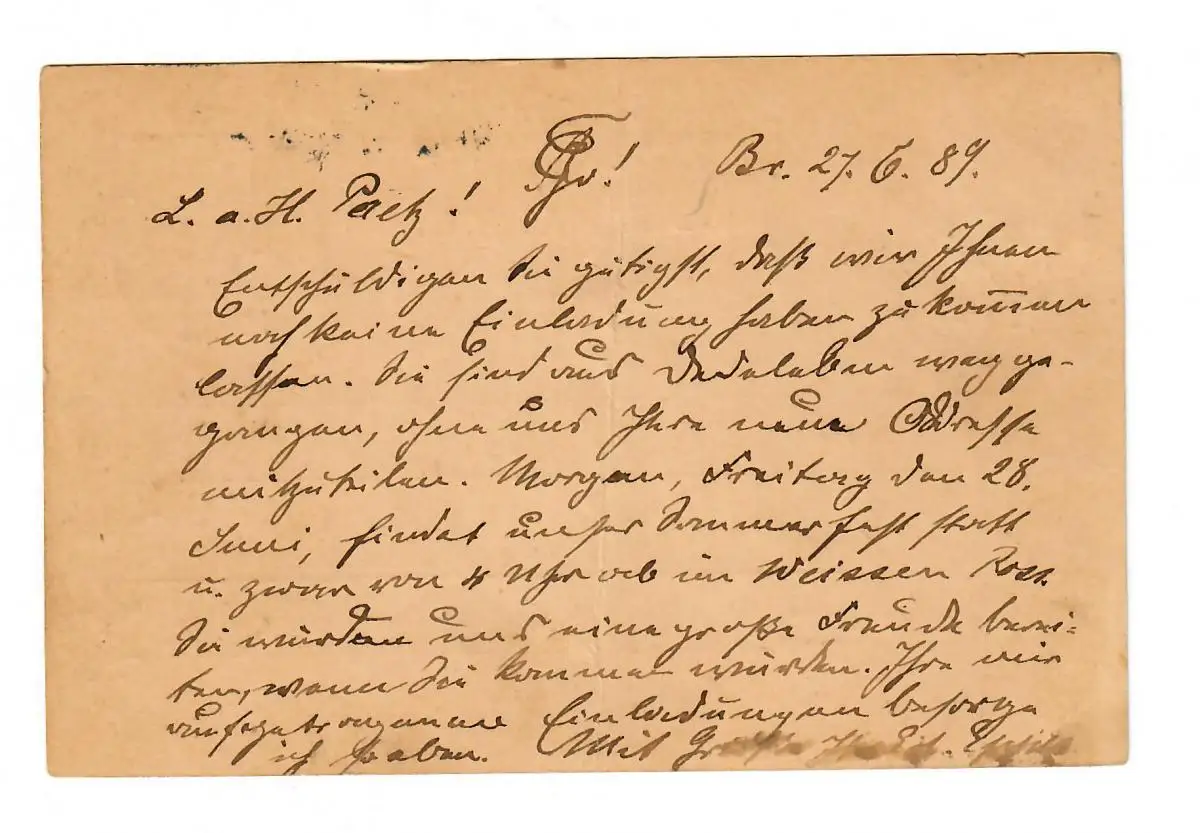 Br. 27. 6. 89.
L. a. H. Paetz!
Entschuldigen Sie gütigst, daß wir Ihnen
noch keine Einladung haben zukom̅en
lassen. Sie sind aus Dedeleben wegge-
gangen, ohne uns Ihre neue Addresse
mitzuteilen. Morgen, Freitag den 28.
Juni, findet unser Sommerfest statt
u. zwar von 4 Uhr ab im Weissen Ross.
Sie würden uns eine große Freude berei-
ten, wenn Sie kommen würden. Ihre mir
aufgetragenen Einladungen besorge
ich soeben. Mit